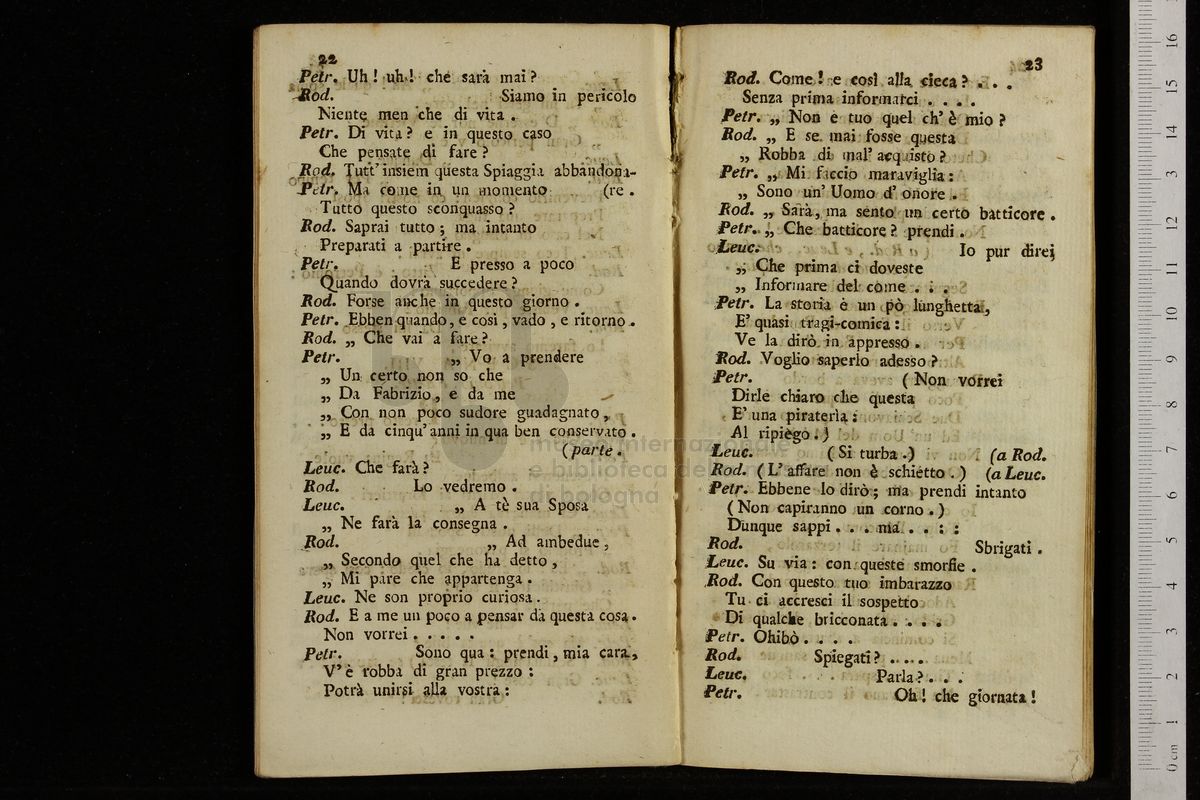 22
Petr. Uh! uh! che sarà mai?
Rod. Siamo in pericolo
Niente men che di vita.
Petr. Di vita? e in questo caso
Che pensate di fare?
Rod. Tutt' insiem questa Spiaggia abbandona-
Petr. Ma come in un momento (re.
Tutto questo sconquasso?
Rod. Saprai tutto; ma intanto
Preparati a partire.
Petr. E presso a poco
Quando dovrà succedere?
Rod. Forse anche in questo giorno.
Petr. Ebben quando, e così, vado, e ritorno.
Rod. „ Che vai a fare?
Petr. „ Vo a prendere
„ Un certo non so che
„ Da Fabrizio, e da me
„ Con non poco sudore guadagnato,
„ E da cinqu' anni in qua ben conservato.
(parte.
Leuc. Che farà?
Rod. Lo vedremo.
Leuc. „ A tè sua Sposa
„ Ne farà la consegna.
Rod. „ Ad ambedue,
„ Secondo quel che ha detto,
„ Mi pare che appartenga.
Leuc. Ne son proprio curiosa.
Rod. E a me un poco a pensar dà questa cosa.
Non vorrei.....
Petr. Sono qua: prendi, mia cara,
V' è robba di gran prezzo:
Potrà unirsi alla vostra:
23
Rod. Come! e così alla cieca? ...
Senza prima informarci....
Petr. „ Non è tuo quel ch' è mio?
Rod. „ E se mai fosse questa
„ Robba di mal' acquisto?
Petr. „ Mi faccio maraviglia:
„ Sono un' Uomo d' onore.
Rod. „ Sarà, ma sento un certo batticore.
Petr. „ Che batticore? prendi.
Leuc. Io pur direi
„ Che prima ci doveste
„ Informare del come...
Petr. La storia è un pò lunghetta,
E' quasi tragi-comica:
Ve la dirò in appresso.
Rod. Voglio saperlo adesso?
Petr. (Non vorrei
Dirle chiaro che questa
E' una piraterìa:
Al ripiègo.)
Leuc. (Si turba.) (a Rod.
Rod. (L' affare non è schietto.) (a Leuc.
Petr. Ebbene lo dirò; ma prendi intanto
(Non capiranno un corno.)
Dunque sappi... ma..::
Rod. Sbrigati.
Leuc. Su via: con queste smorfie.
Rod. Con questo tuo imbarazzo
Tu ci accresci il sospetto
Di qualche bricconata....
Petr. Ohibò....
Rod. Spiegati?.....
Leuc. Parla?...
Petr. Oh! che giornata!
museo internazionale
e biblioteca della musica
di bologna